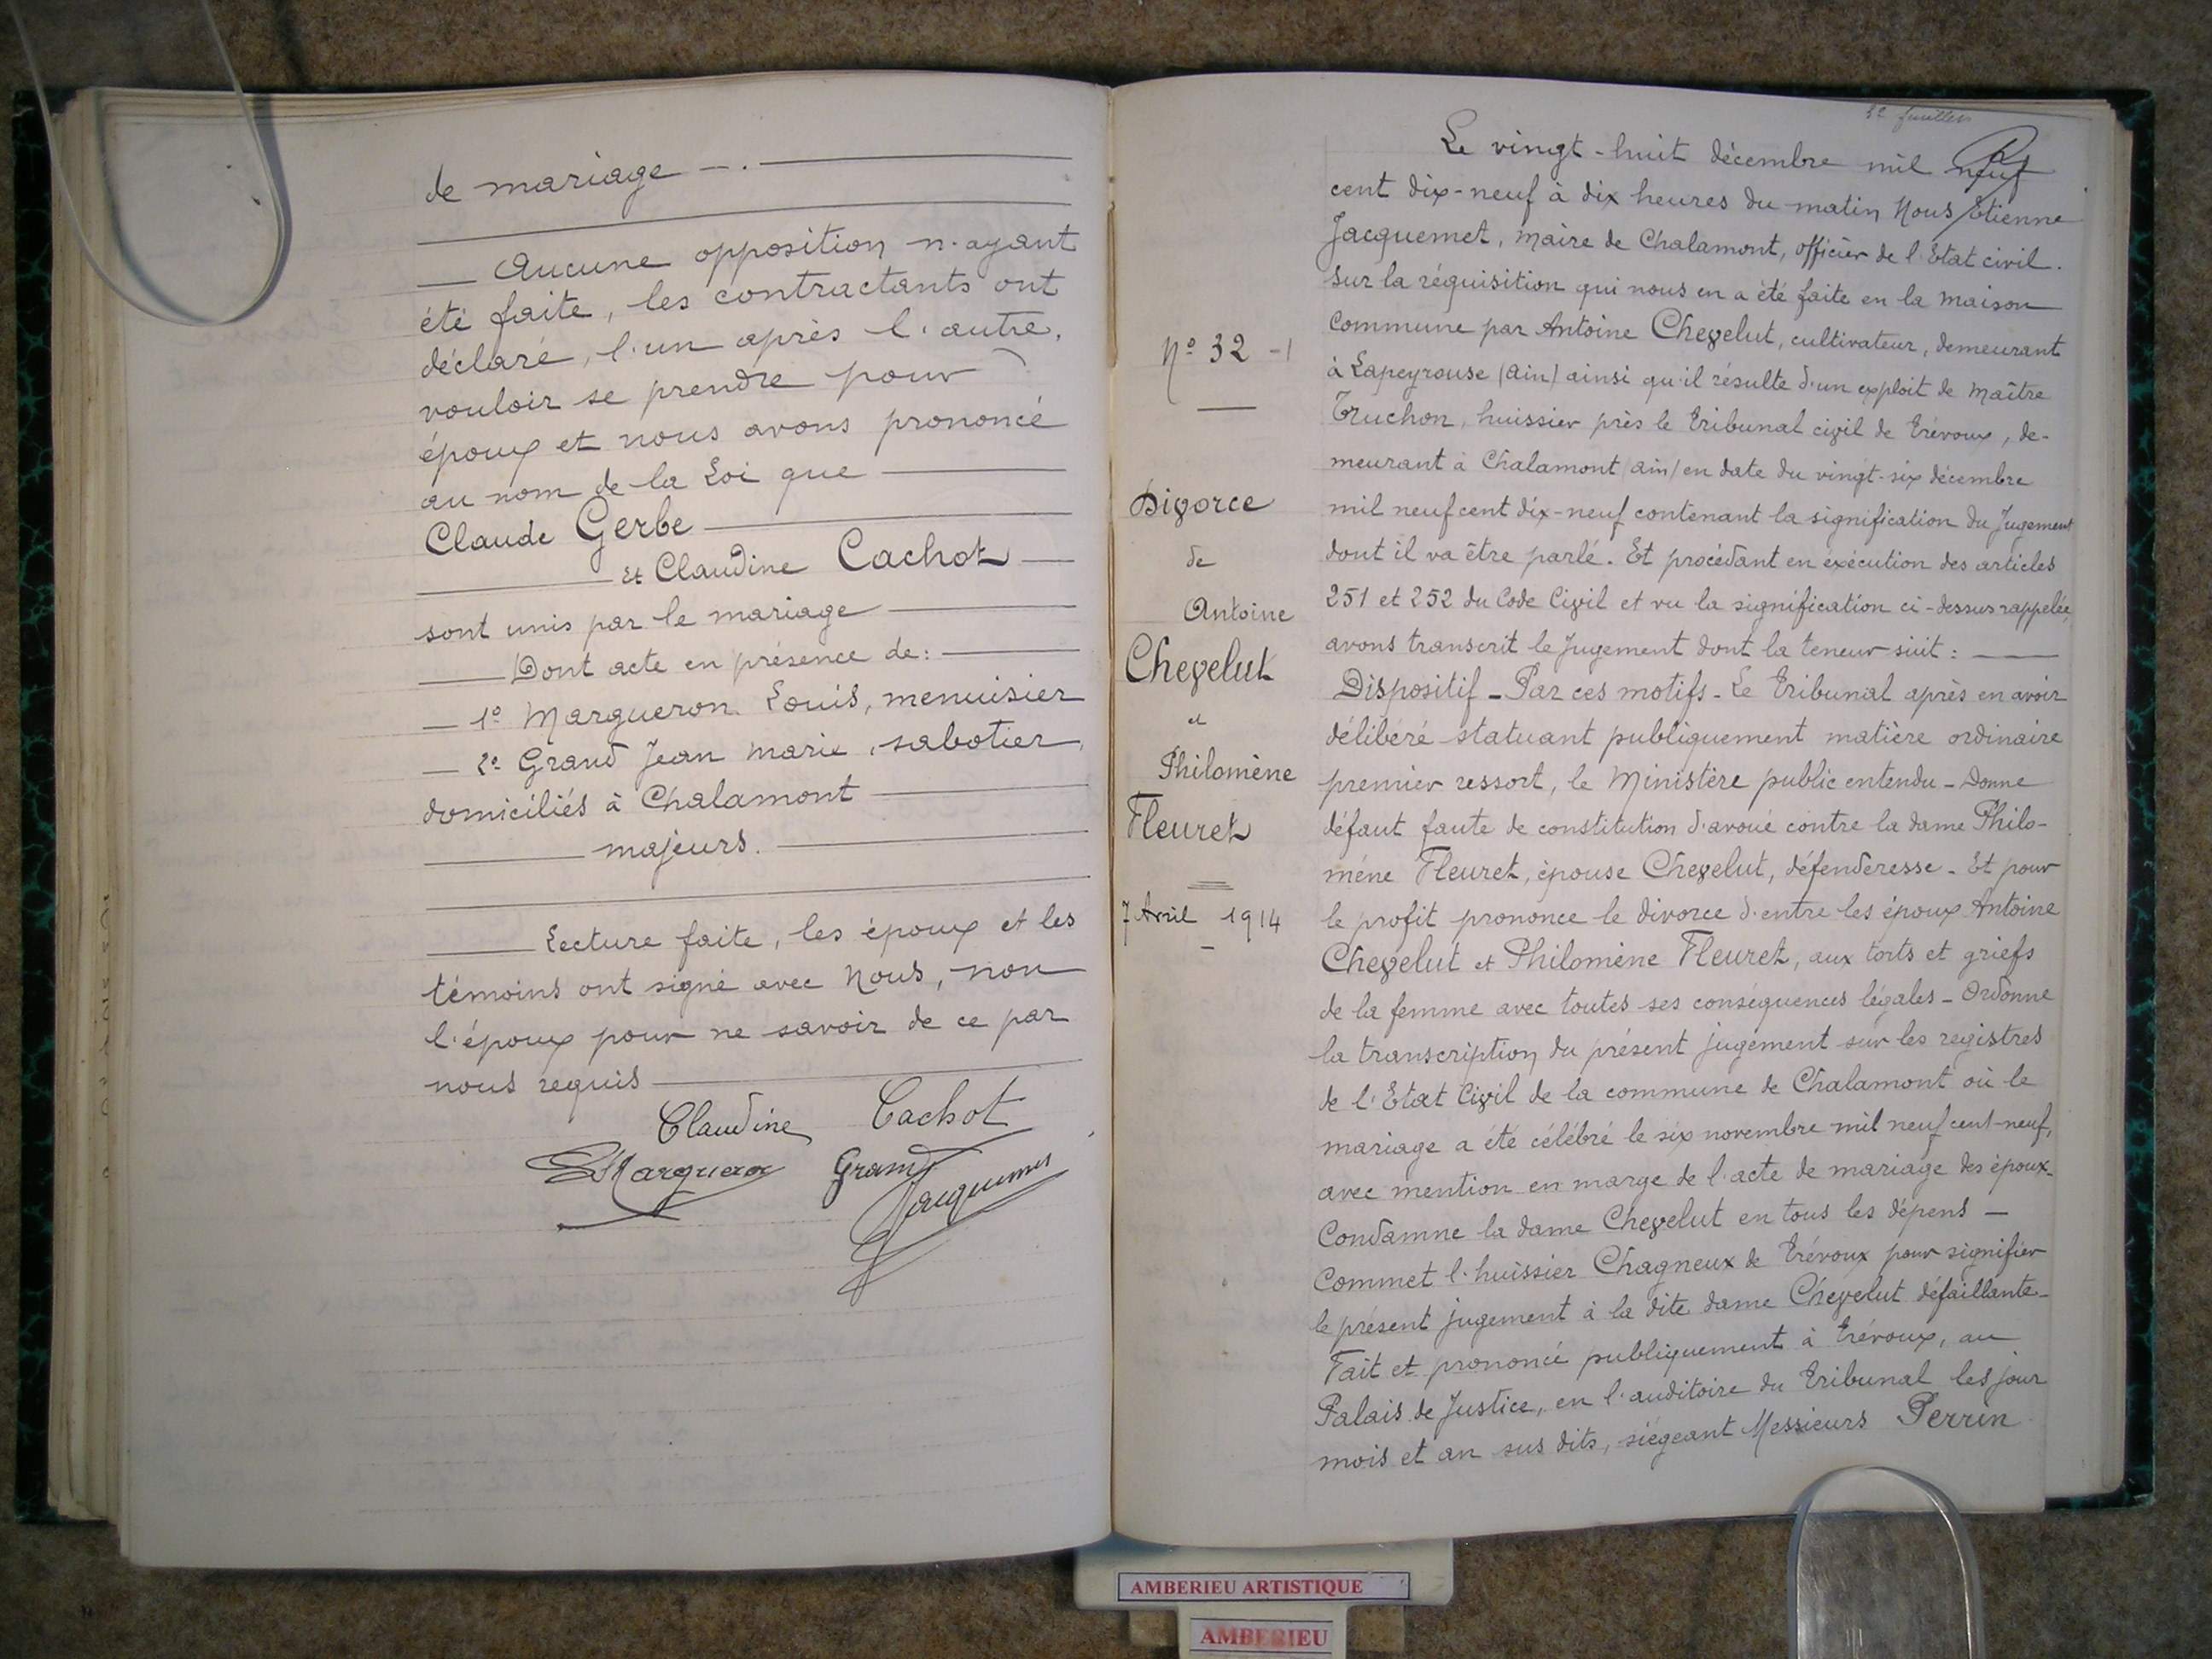 de mariage - . -
— Aucune opposition n'ayant
été faite, les contractants ont
déclaré, l'un après l'autre,
vouloir se prendre pour
époux et nous avons prononcé
au nom de la Loi que
Claude Gerbe
et Claudine Cachot
sont unis par le mariage
Dont acte en présence de :
— 1º Margueron Louis, menuisier
— 2º Grand Jean Marie, sabotier,
domiciliés à Chalamont
majeurs.
Lecture faite, les époux et les
témoins ont signé avec Nous, non
l'époux pour ne savoir de ce par
nous requis
Claudine Cachot
Margueron Grand
Jacquemet
32 feuillets
Nº 32 -1
Divorce
de
Antoine
Chevelut
et
Philomène
Fleuret
7 Avril 1914
Le vingt-huit décembre mil neuf
cent dix-neuf à dix heures du matin Nous Etienne
Jacquemet, Maire de Chalamont, officier de l'Etat civil.
Sur la réquisition qui nous en a été faite en la Maison
Commune par Antoine Chevelut, cultivateur, demeurant
à Lapeyrouse (Ain) ainsi qu'il résulte d'un exploit de Maître
Truchon, huissier près le Tribunal civil de Trévoux, de-
meurant à Chalamont (Ain) en date du vingt-six décembre
mil neuf cent dix-neuf contenant la signification du Jugement
dont il va être parlé. Et procédant en éxécution des articles
251 et 252 du Code Civil et vu la signification ci-dessus rappelée,
avons transcrit le Jugement dont la teneur suit :
Dispositif - Par ces motifs - Le Tribunal après en avoir
délibéré statuant publiquement matière ordinaire
premier ressort, le Ministère public entendu - Donne
défaut faute de constitution d'avoué contre la dame Philo-
mène Fleuret, épouse Chevelut, défenderesse - Et pour
le profit prononce le divorce d'entre les époux Antoine
Chevelut et Philomène Fleuret, aux torts et griefs
de la femme avec toutes ses conséquences légales - Ordonne
la transcription du présent jugement sur les registres
de l'Etat Civil de la commune de Chalamont où le
mariage a été célébré le six novembre mil neuf cent-neuf,
avec mention en marge de l'acte de mariage des époux -
Condamne la dame Chevelut en tous les dépens -
Commet l'huissier Chagneux de Trévoux pour signifier
le présent jugement à la dite dame Chevelut défaillante -
Fait et prononcé publiquement à Trévoux, au
Palais de Justice, en l'auditoire du Tribunal les jour
mois et an sus dits, siégeant Messieurs Perrin
AMBERIEU ARTISTIQUE
AMBERIEU